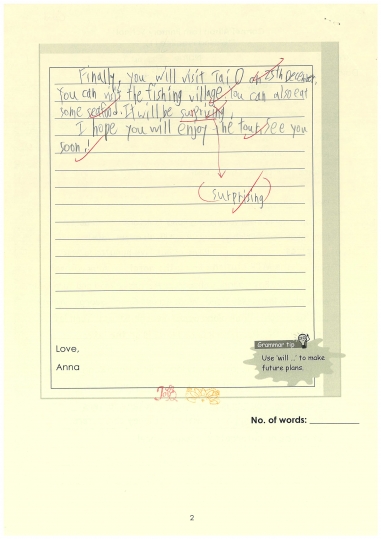 Finally, you will visit Tai O on 25th December.
You can visit the fishing village. You can also eat
some seafood. It will be surprising.
I hope you will enjoy the tour. See you
soon!
(surprising)
Love,
Anna
Grammar tip
Use 'will …' to make
future plans.
No. of words:
2